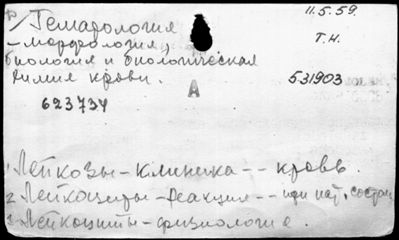 Р/Гематология 11.5.59.
– морфология, Т.Н.
биология и биологическая
химия крови. 531903
А
623734
1 Лейкозы – клиника -- кровь.
2 Лейкоциты – реакция -- при пат. состоян
3 Лейкоциты – физиология.